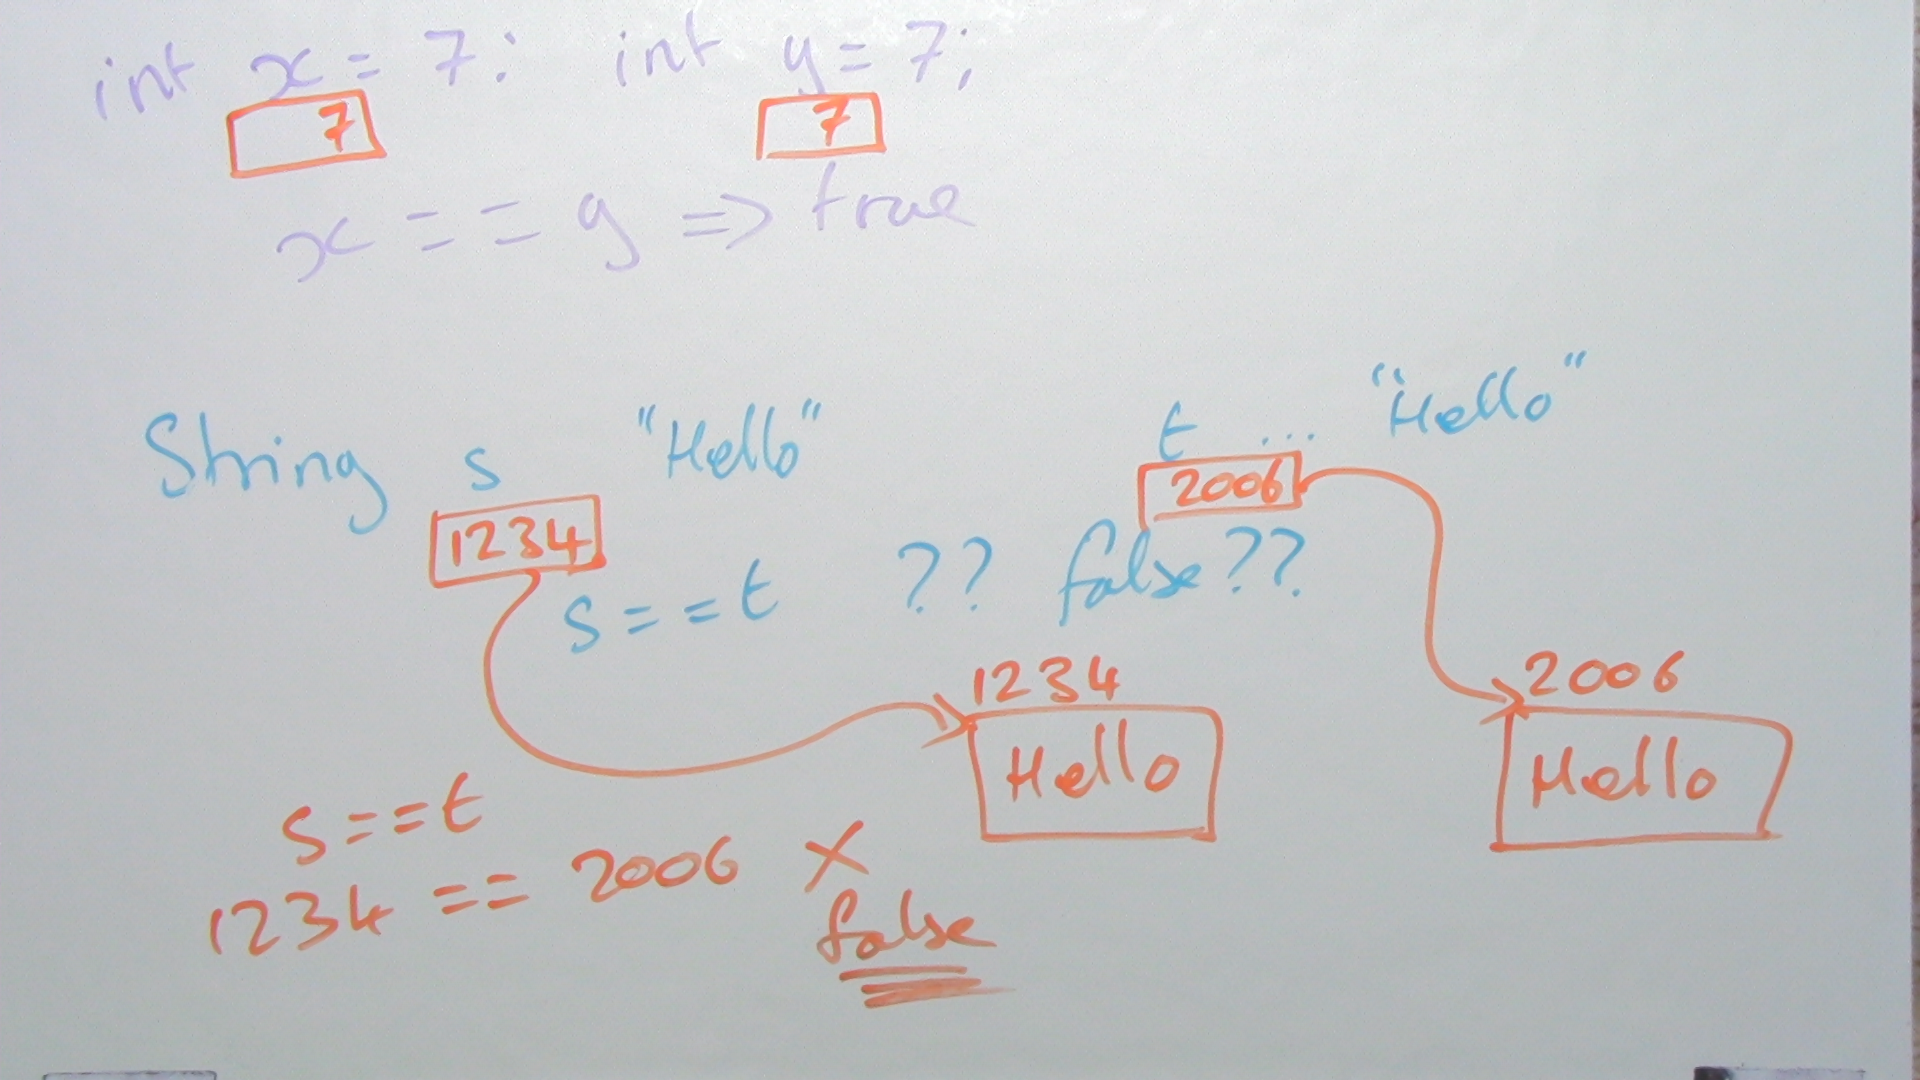 int x = 7; int y = 7;
7 7
x == y => true
String s "Hello" t ... "Hello"
1234 2006
s == t ?? false??
1234 2006
Hello Hello
s == t
1234 == 2006 X
false